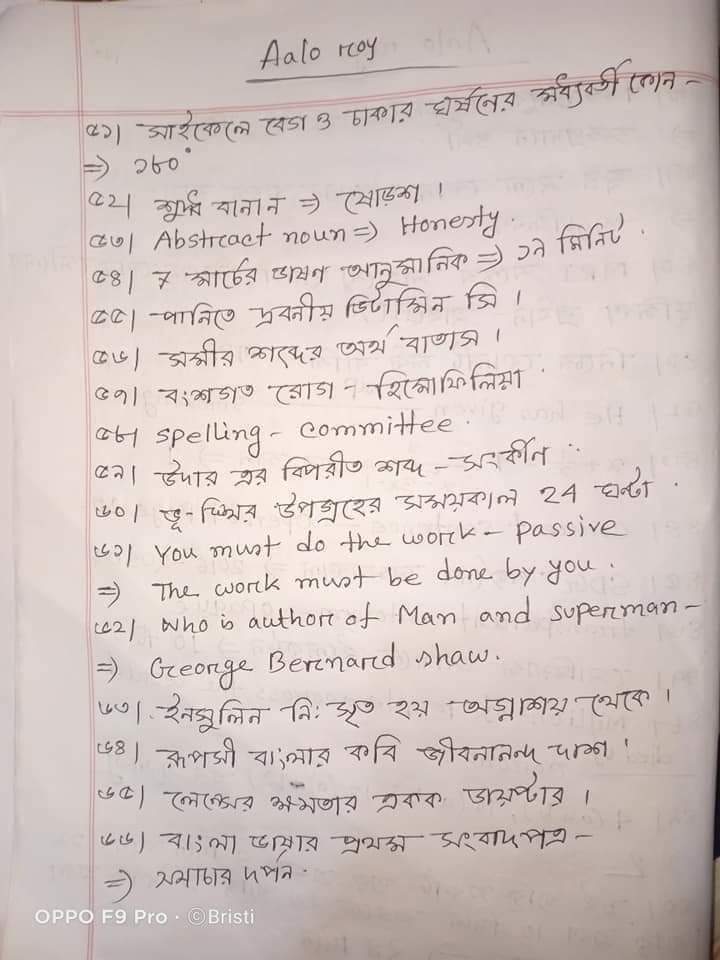 Aalo roy
৫১| সাইকেলে বেগ ও চাকার ঘর্ষনের মধ্যবর্তী কোন -
=> ১৮০°
৫২| শুদ্ধ বানান => ষোড়শ ।
৫৩| Abstract noun => Honesty.
৫৪| ৭ মার্চের ভাষণ আনুমানিক => ১৯ মিনিট .
৫৫| পানিতে দ্রবনীয় ভিটামিন সি ।
৫৬| সমীর শব্দের অর্থ বাতাস ।
৫৭| বংশগত রোগ - হিমোফিলিয়া .
৫৮| spelling - committee .
৫৯| উদার এর বিপরীত শব্দ - সংকীর্ন .
৬০| ভূ-স্থির উপগ্রহের সময়কাল 24 ঘন্টা .
৬১| You must do the work - passive
=> The work must be done by you .
৬২| Who is author of Man and superman -
=> George Bernard shaw.
৬৩| ইনসুলিন নিঃসৃত হয় অগ্নাশয় থেকে ।
৬৪| রূপসী বাংলার কবি জীবনানন্দ দাশ ।
৬৫| লেন্সের ক্ষমতার একক ডায়প্টার ।
৬৬| বাংলা ভাষার প্রথম সংবাদপত্র -
=> সমাচার দর্পন .
OPPO F9 Pro · ©Bristi